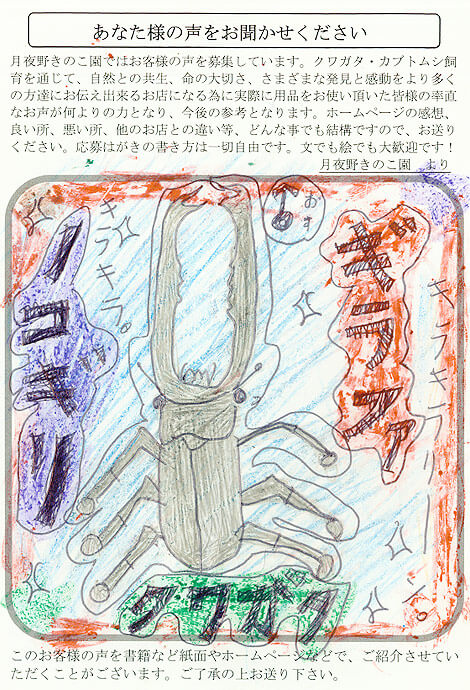 あなた様の声をお聞かせください
月夜野きのこ園ではお客様の声を募集しています。クワガタ・カブトムシ飼
育を通じて、自然との共生、命の大切さ、さまざまな発見と感動をより多く
の方達にお伝え出来るお店になる為に実際に用品をお使い頂いた皆様の率直
なお声が何よりの力となり、今後の参考となります。ホームページの感想、
良い所、悪い所、他のお店との違い等、どんな事でも結構ですので、お送り
ください。応募はがきの書き方は一切自由です。文でも絵でも大歓迎です！
月夜野きのこ園　より
ギラファ
キラキラリーン。
おす
キラキラ。
ノコギリ
クワガタ
このお客様の声を書籍など紙面やホームページなどで、ご紹介させてい
ただくことがございます。ご了承の上お送り下さい。